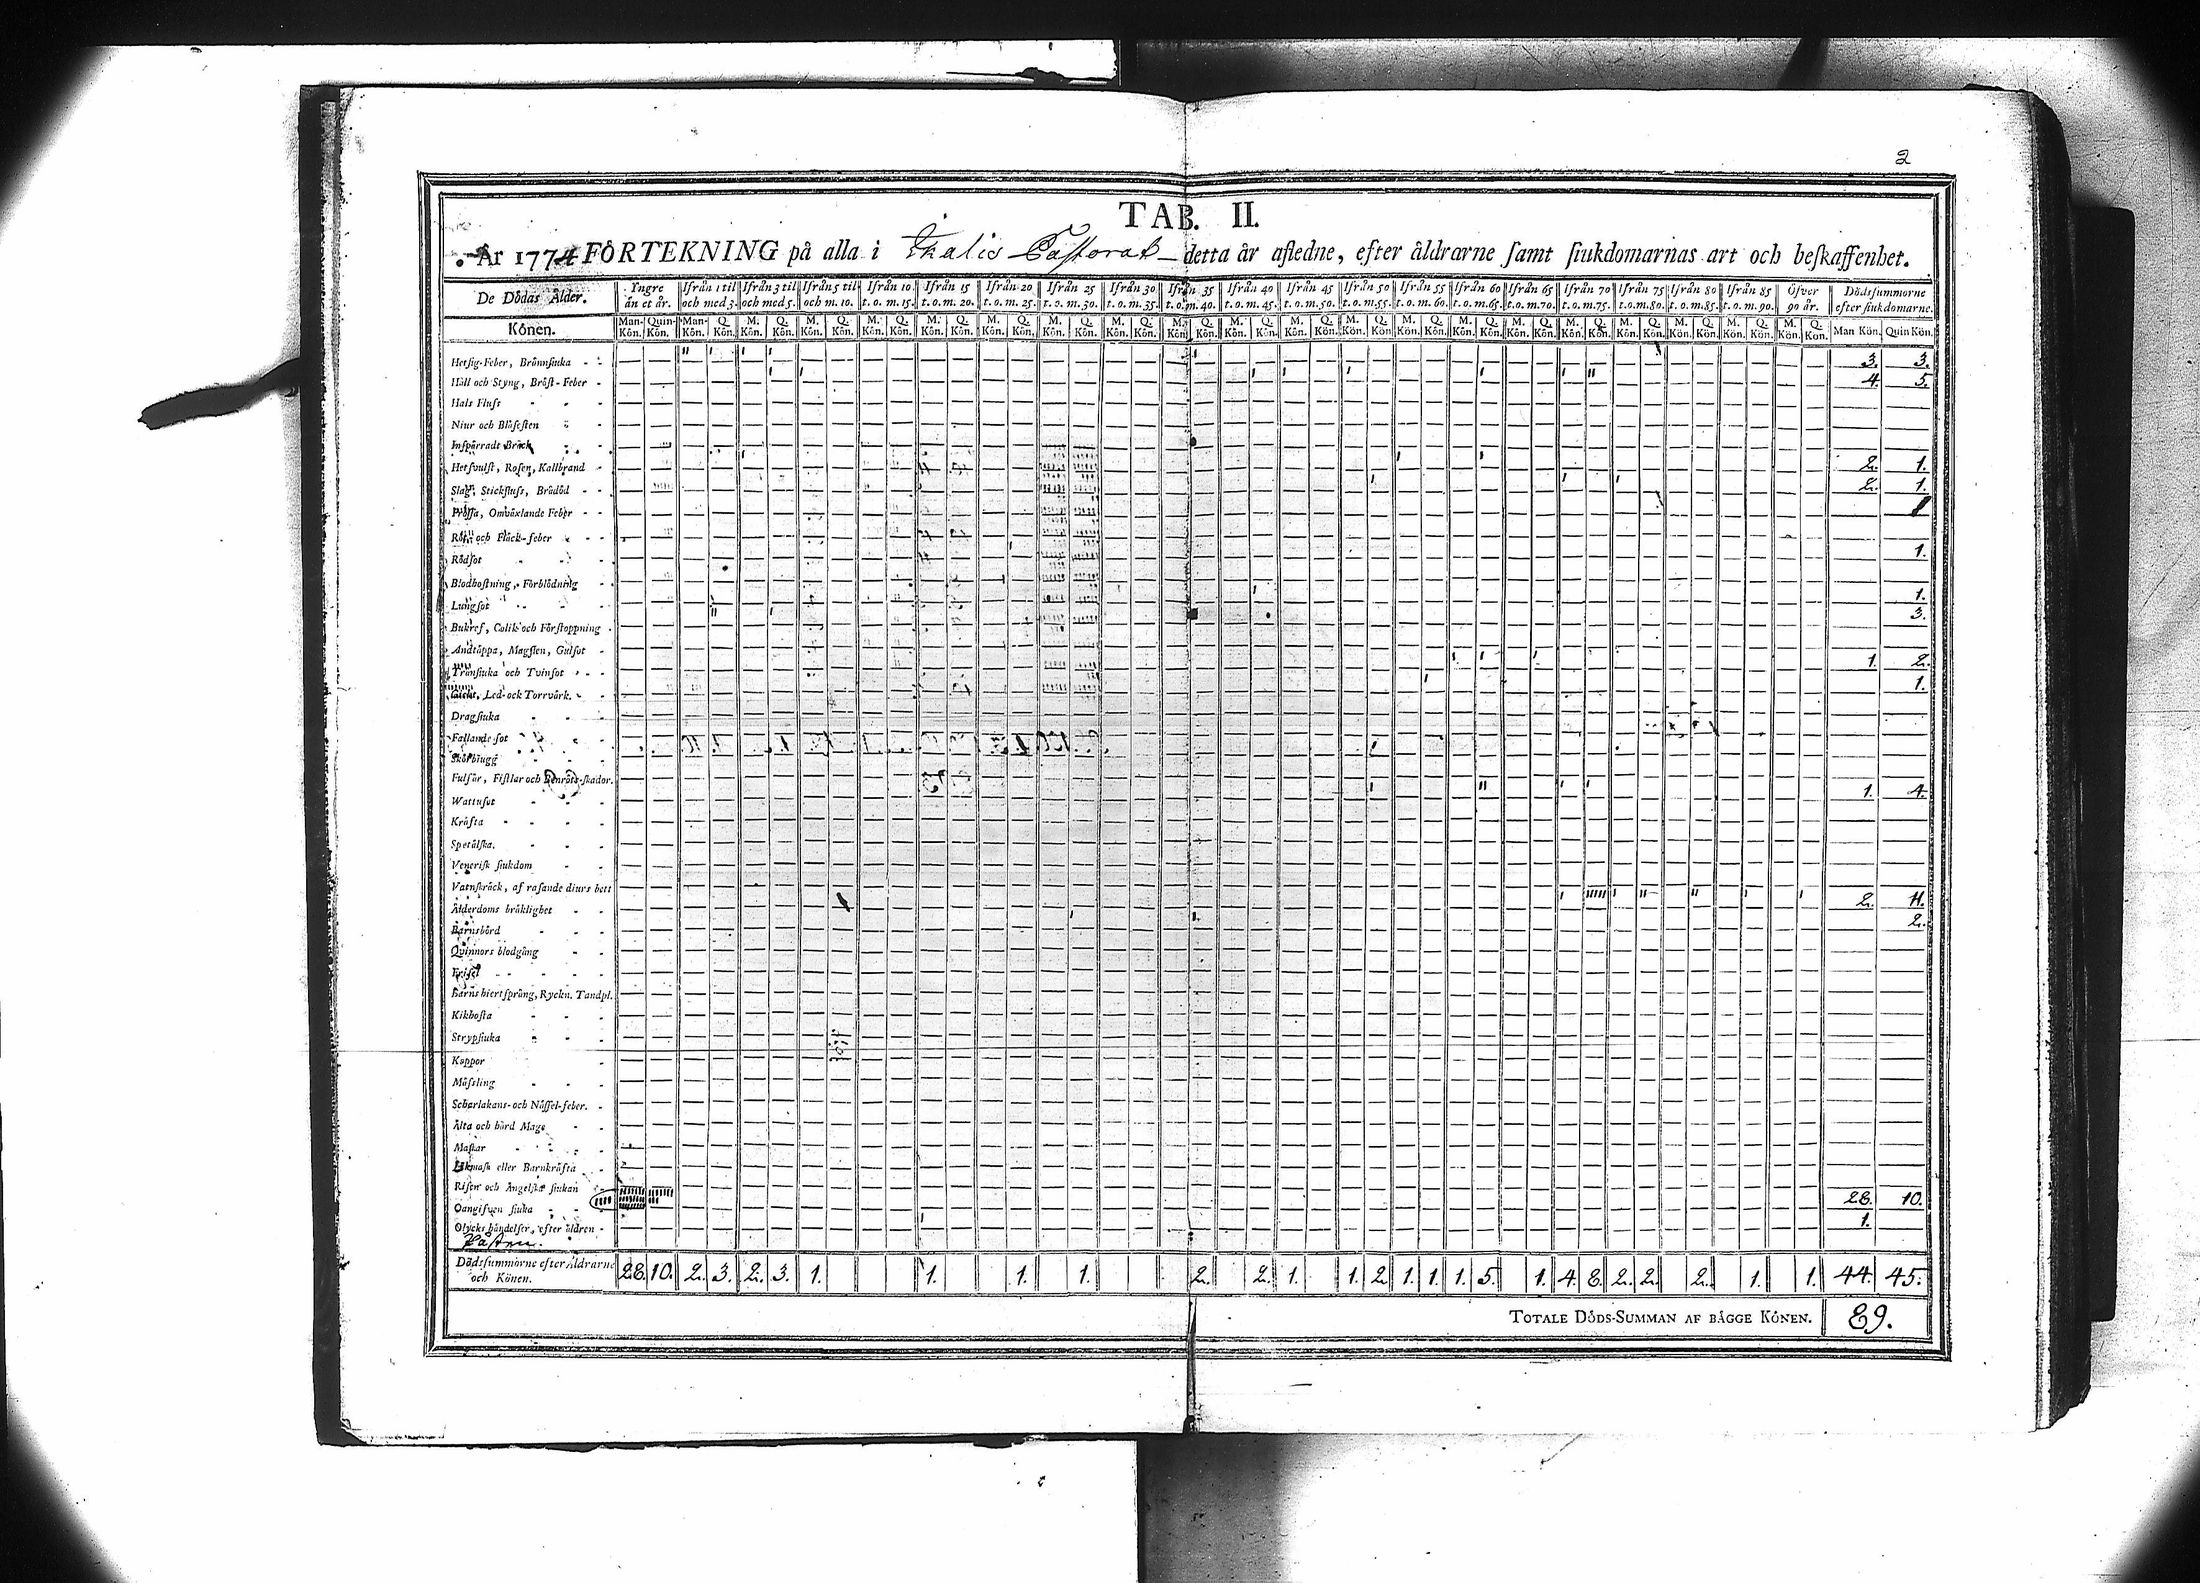 2
TAB. II.
År 1774 FÖRTEKNING på alla i Ikalis Pastorat detta år afledne, efter åldrarne samt siukdomarnas art och beskaffenhet.
De Dödas Ålder. Yngre än et år. Ifrån 1 til och med 3. Ifrån 3 til och med 5. Ifrån 5 til och m. 10. Ifrån 10 t. o. m. 15. Ifrån 15 t. o. m. 20. Ifrån 20 t. o. m. 25. Ifrån 25 t. o. m. 30. Ifrån 30 t. o. m. 35. Ifrån 35 t. o. m. 40. Ifrån 40 t. o. m. 45. Ifrån 45 t. o. m. 50. Ifrån 50 t. o. m. 55. Ifrån 55 t. o. m. 60. Ifrån 60 t. o. m. 65. Ifrån 65 t. o. m. 70. Ifrån 70 t. o. m. 75. Ifrån 75 t. o. m. 80. Ifrån 80 t. o. m. 85. Ifrån 85 t. o. m. 90. Öfver 90 år. Dödssummorne efter siukdomarne.
Könen. Man-Kön. Quin-Kön. Man-Kön. Q. Kön. M. Kön. Q. Kön. M. Kön. Q. Kön. M. Kön. Q. Kön. M. Kön. Q. Kön. M. Kön. Q. Kön. M. Kön. Q. Kön. M. Kön. Q. Kön. M. Kön. Q. Kön. M. Kön. Q. Kön. M. Kön. Q. Kön. M. Kön. Q. Kön. M. Kön. Q. Kön. M. Kön. Q. Kön. M. Kön. Q. Kön. M. Kön. Q. Kön. M. Kön. Q. Kön. M. Kön. Q. Kön. M. Kön. Q. Kön. M. Kön. Q. Kön. Man Kön. Quin Kön.
Hetsig-Feber, Brännsiuka 3. 3.
Håll och Styng, Bröst-Feber 4. 5.
Hals Fluss
Niur och Blåsesten
Inspärradt Bråck
Hetsvulst, Rosen, Kallbrand 2. 1.
Slag, Stickfluss, Brådöd 2. 1.
Frossa, Omväxlande Feber
Röt- och Fläck-feber
Rödsot 1.
Blodhostning, Förblödning
Lungsot 1.
Bukref, Colik och Förstoppning 3.
Andtäppa, Magsten, Gulsot
Trånsiuka och Tvinsot 1. 2.
Gickt, Led- ock Torrvärk. 1.
Dragsiuka
Fallande-sot
Skörbiugg
Fulsår, Fistlar och Benröts-skador.
Wattusot 1. 4.
Kräfta
Spetälska.
Venerisk siukdom
Vatnskräck, af rasande diurs bett
Ålderdoms bräklighet 2. 11.
Barnsbörd 2.
Qvinnors blodgång
Frisel
Barns hiertsprång, Ryckn. Tandpl.
Kikhosta
Strypsiuka
Koppor
Mässling
Scharlakans- och Nässel-feber.
Älta och hård Mage
Maskar
Ekmask eller Barnkräfta
Risen och Ängelska siukan
Oangifven siuka 28. 10.
Olycks händelser, efter åldren 1.
Dödssummorne efter Åldrarne och Könen. 28. 10. 2. 3. 2. 3. 1. 1. 1. 1. 2. 2. 1. 1. 2. 1. 1. 1. 5. 1. 4. 8. 2. 2. 2. 1. 1. 44. 45.
TOTALE DÖDS-SUMMAN AF BÄGGE KÖNEN. 89.